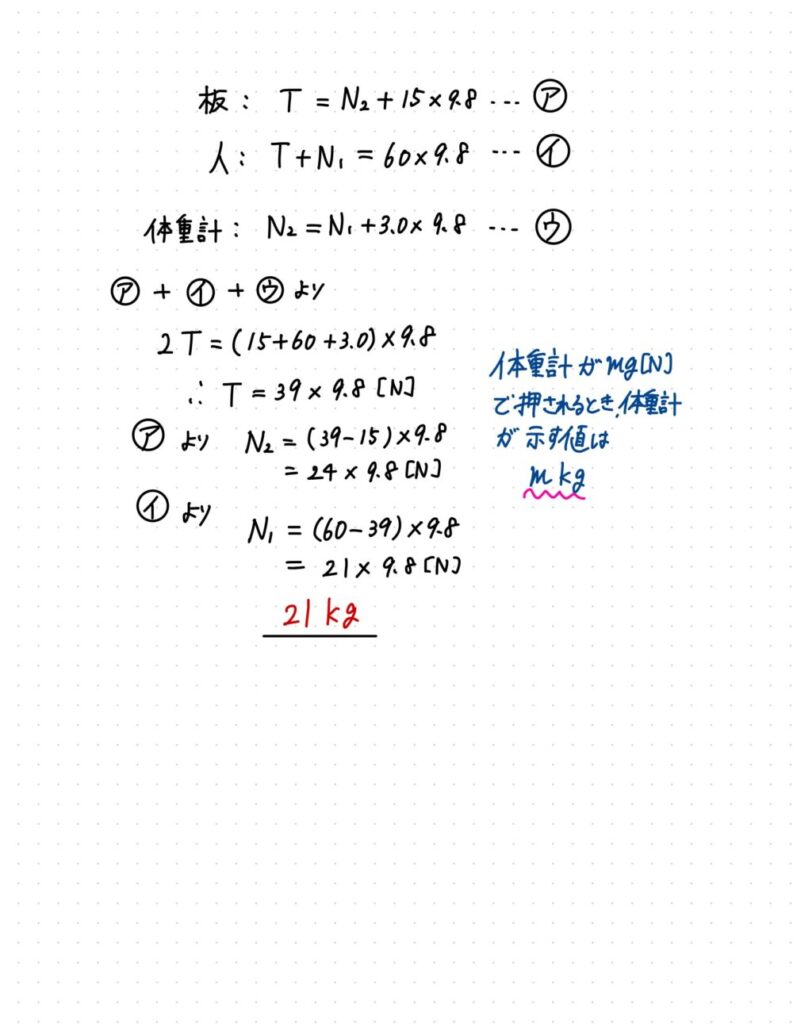 板： T = N₂ + 15 × 9.8 … ㋐
人： T + N₁ = 60 × 9.8 … ㋑
体重計： N₂ = N₁ + 3.0 × 9.8 … ㋒
㋐ + ㋑ + ㋒ より
2T = (15 + 60 + 3.0) × 9.8
∴ T = 39 × 9.8 [N]
㋐ より N₂ = (39 − 15) × 9.8
= 24 × 9.8 [N]
㋑ より N₁ = (60 − 39) × 9.8
= 21 × 9.8 [N]
21 kg
体重計がmg[N]
で押されるとき、体重計
が示す値は
m kg